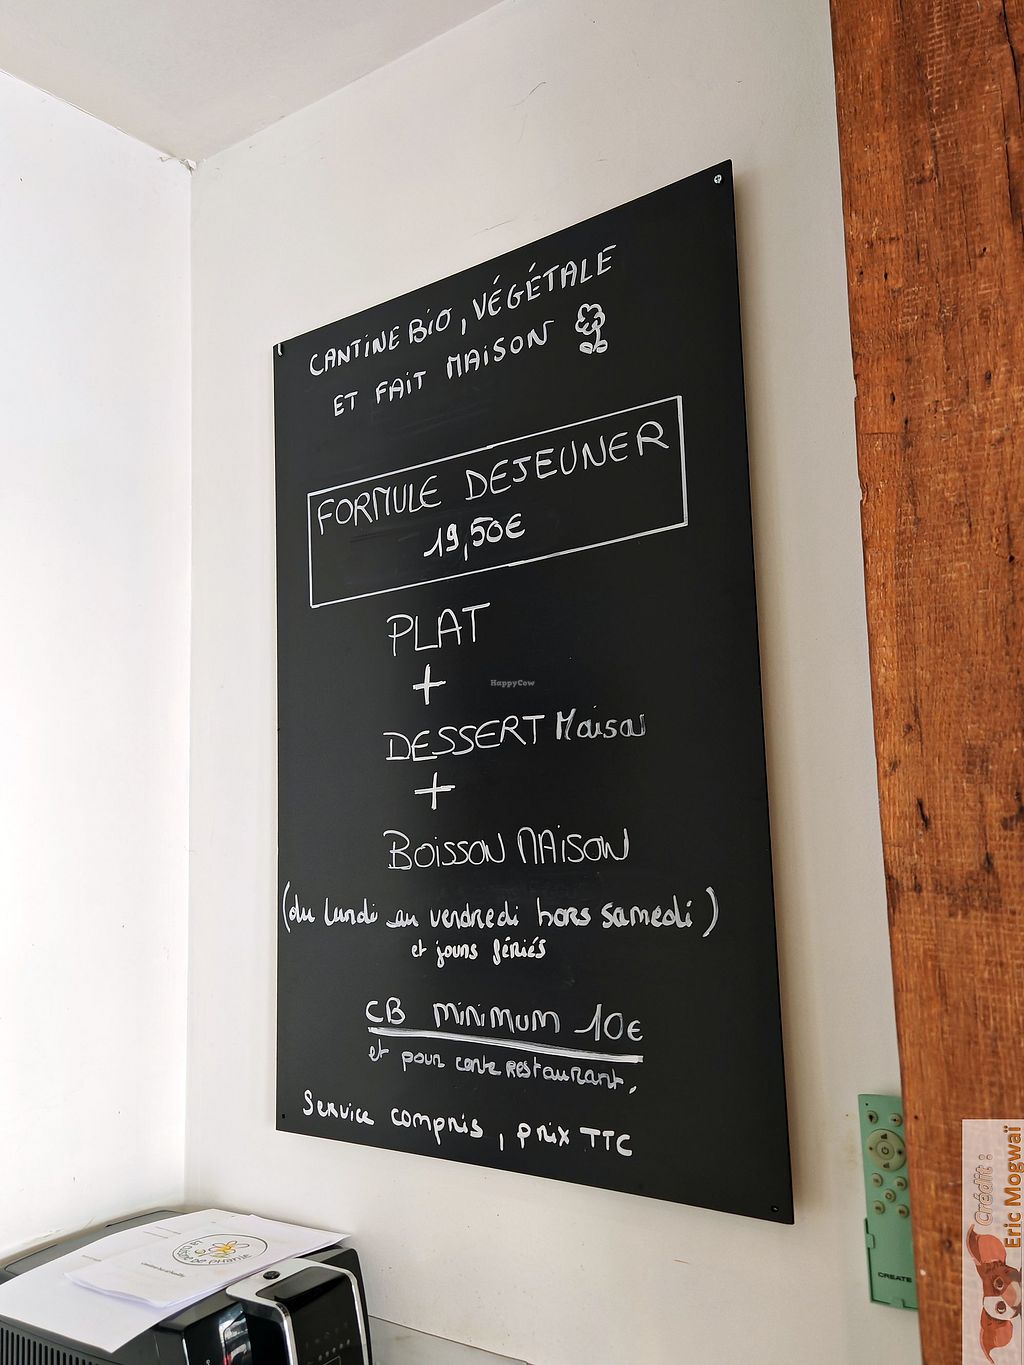 CANTINE BiO, VÉGÉTALE
ET FAiT MAiSON
FORMULE DEJEUNER
19,50€
PLAT
+
DESSERT Maison
+
BOiSSON MAiSON
(du lundi au vendredi hors samedi)
et jours fériés
CB MiNiMUM 10€
et pour carte RESTAURANT,
Service compris, prix TTC
HappyCow
CREATE
Crédit :
Eric Mogwaï